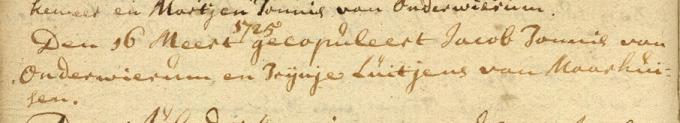 kemeer en Martjen Jonnis van Onderwierum.
Den 16 Meert 1725 gecopuleert Jacob Jonnis van
Onderwierum en Trijnje Luitjens van Maarhui=
sen.